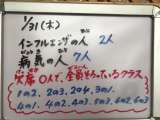 1/31(木)
インフルエンザの人 2人
病気の人 7人
欠席0人で、全員そろっているクラス
1の2. 2の3. 2の4. 3の1.
4の1. 4の2. 4の3. 5の3. 6の2. 6の3